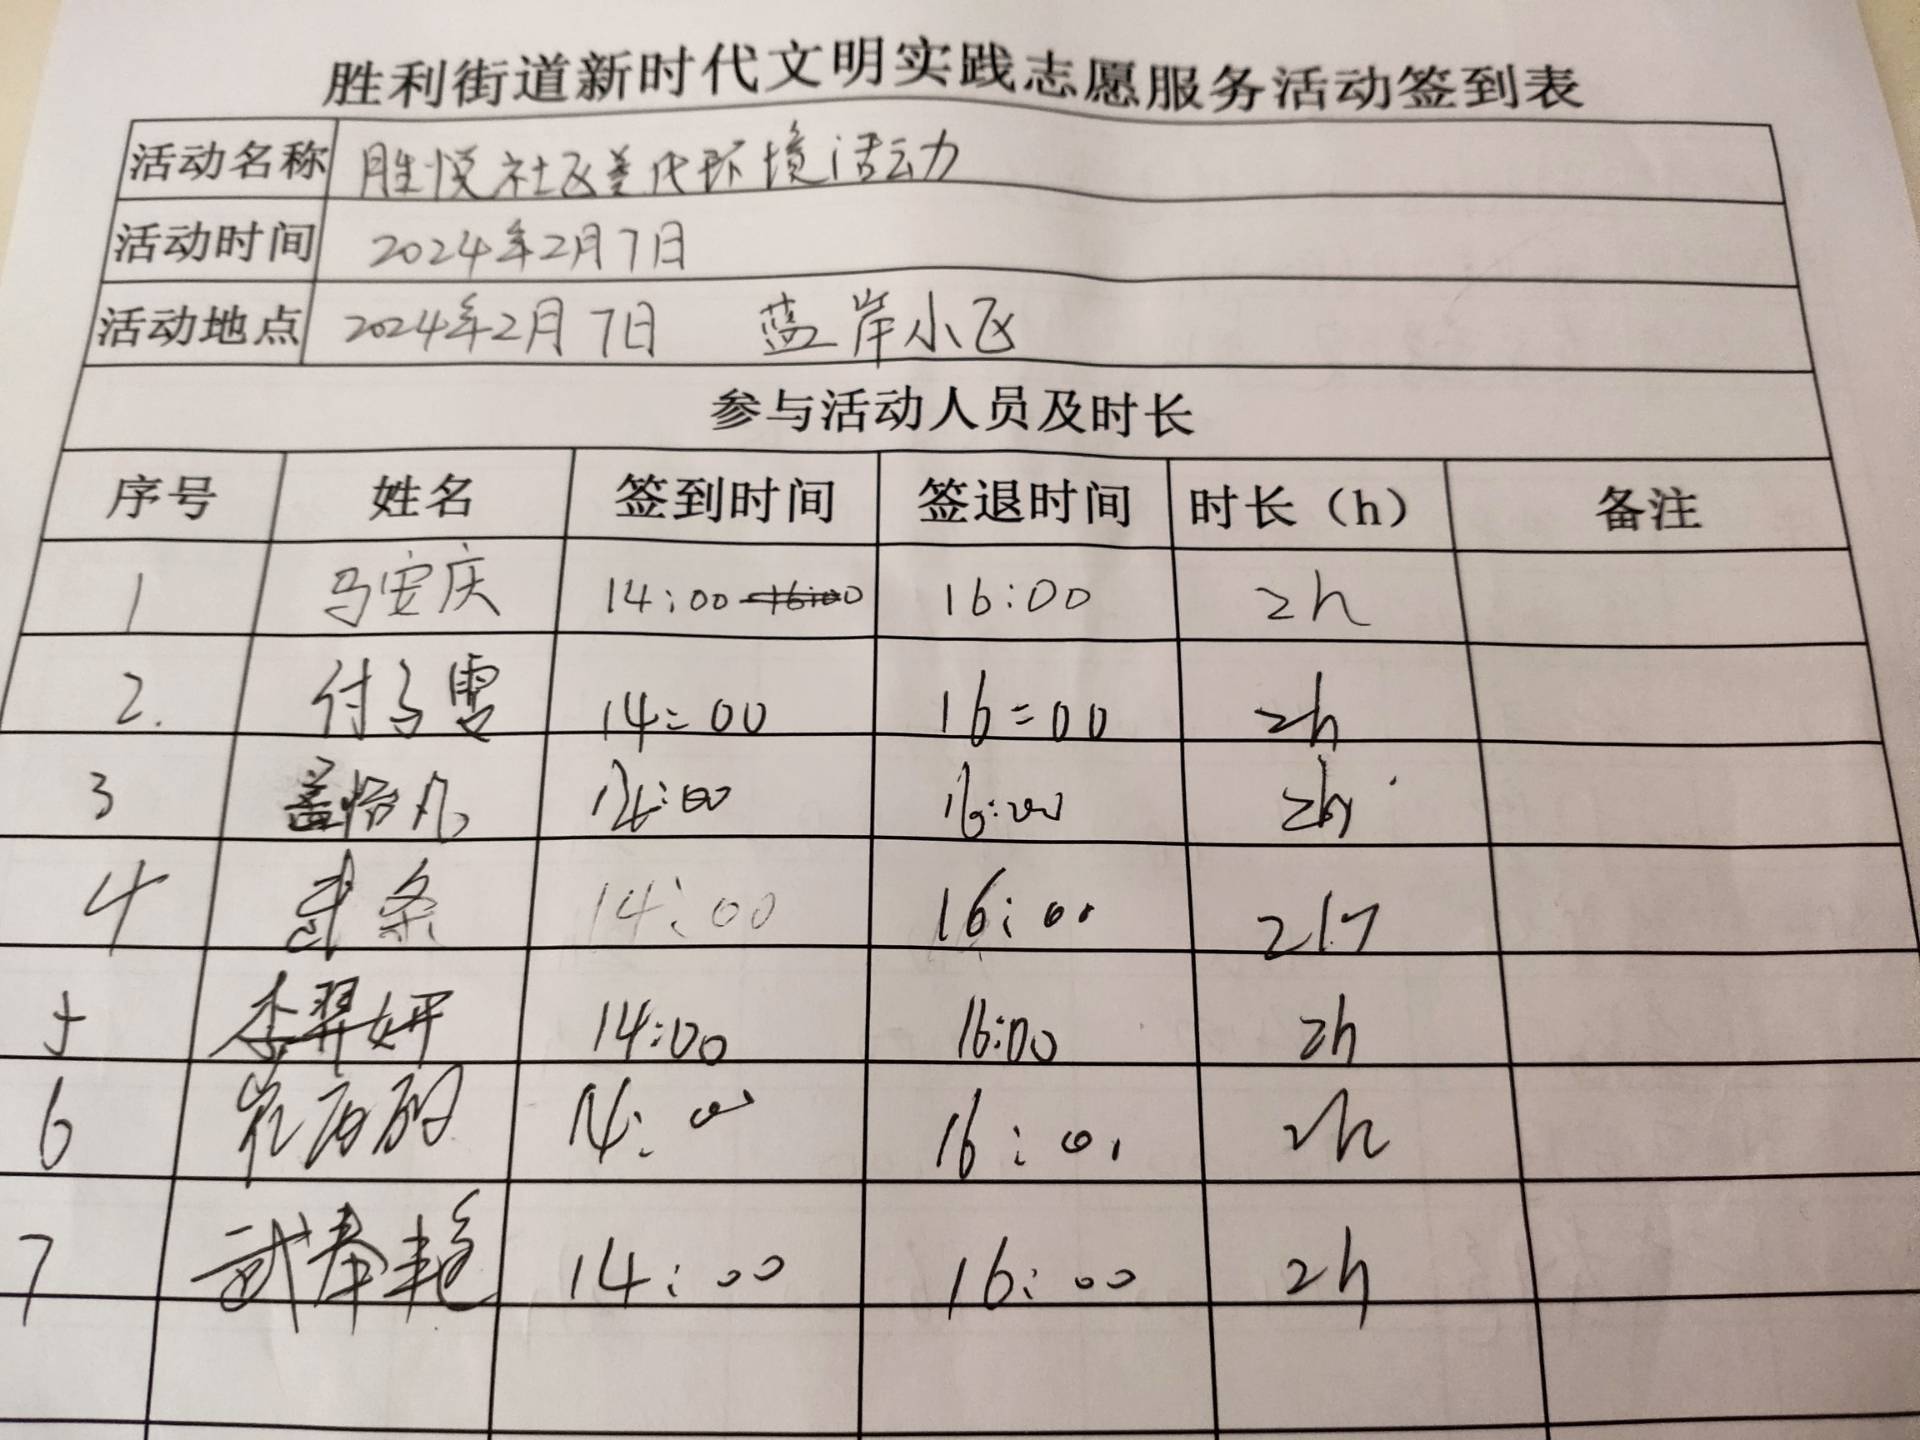 胜利街道新时代文明实践志愿服务活动签到表
活动名称 胜悦社区美化环境活动
活动时间 2024年2月7日
活动地点 2024年2月7日 蓝岸小区
参与活动人员及时长
序号 姓名 签到时间 签退时间 时长（h） 备注
1 马安庆 14:00 16:00 2h
2. 付雪 14:00 16:00 2h
3 盖怡凡 14:00 16:00 2h
4 14:00 16:00 2h
5 李羿妍 14:00 16:00 2h
6 崔 14:00 16:00 2h
7 武春艳 14:00 16:00 2h